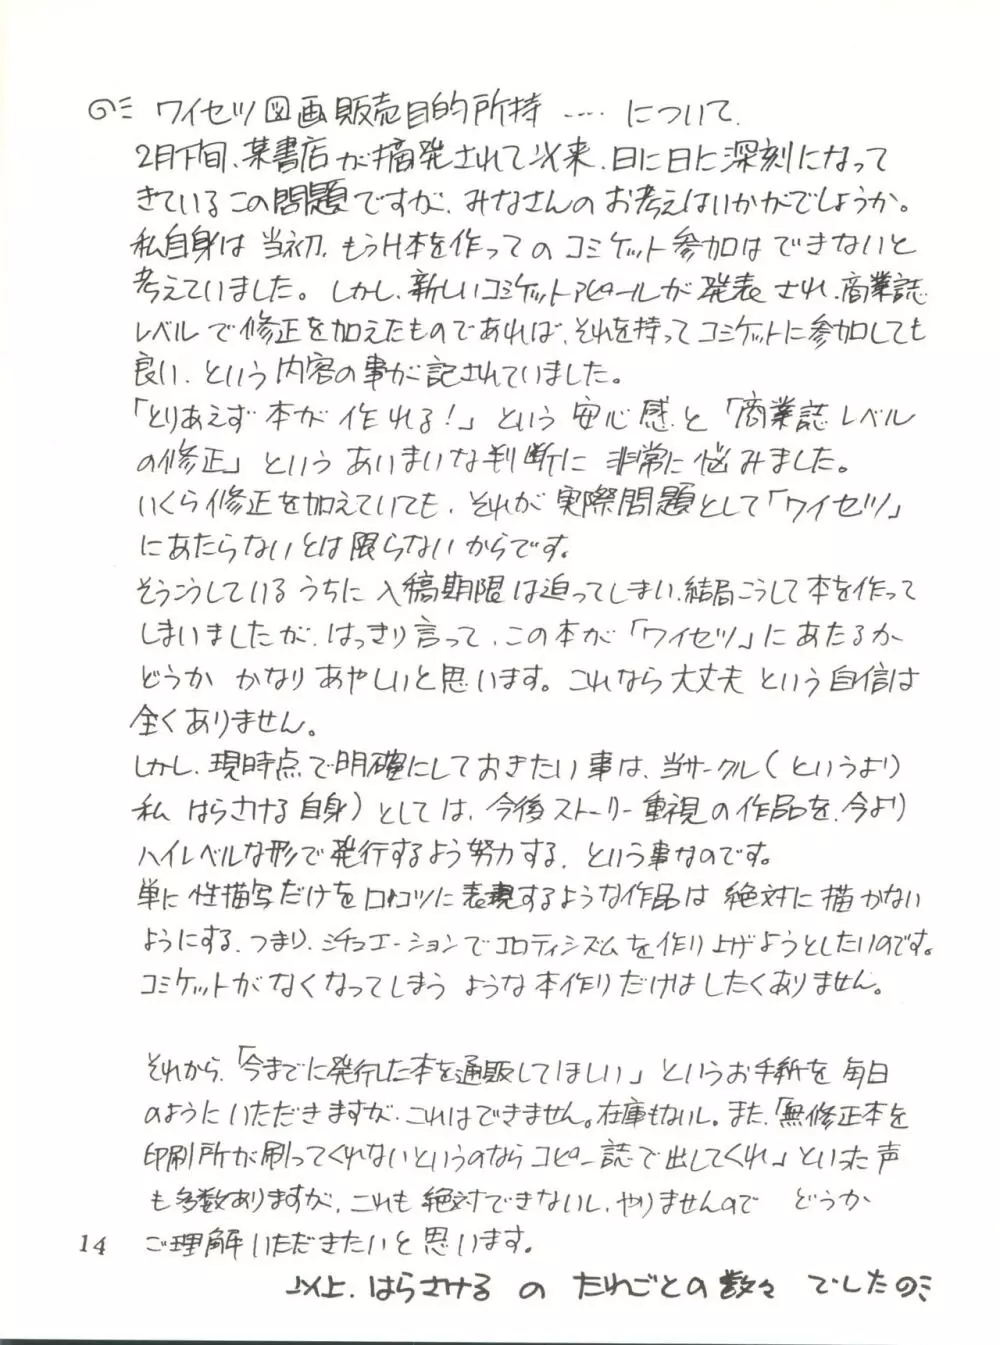 ワイセツ図画販売目的所持……について.
2月下旬、某書店が摘発されて以来、日に日に深刻になって
きているこの問題ですが、みなさんのお考えはいかがでしょうか。
私自身は当初、もうH本を作ってのコミケット参加はできないと
考えていました。しかし、新しいコミケットアピールが発表され、商業誌
レベルで修正を加えたものであれば、それを持ってコミケットに参加しても
良い、という内容の事が記されていました。
「とりあえず本が作れる!」という安心感と「商業誌レベル
の修正」というあいまいな判断に非常に悩みました。
いくら修正を加えていても、それが実際問題として「ワイセツ」
にあたらないとは限らないからです。
そうこうしているうちに入稿期限は迫ってしまい、結局こうして本を作って
しまいましたが、はっきり言って、この本が「ワイセツ」にあたるか
どうかかなりあやしいと思います。これなら大丈夫という自信は
全くありません。
しかし、現時点で明確にしておきたい事は、当サークル(というより
私はらさける自身)としては、今後ストーリー重視の作品を、今より
ハイレベルな形で発行するよう努力する、という事なのです。
単に性描写だけをロコツに表現するような作品は絶対に描かない
ようにする、つまり、シチュエーションでエロティシズムを作り上げようとしたいのです。
コミケットがなくなってしまうような本作りだけはしたくありません。
それから、「今までに発行した本を通販してほしい」というお手紙を毎日
のようにいただきますが、これはできません。在庫もないし。また、「無修正本を
印刷所が刷ってくれないというのならコピー誌で出してくれ」といった声
も多数ありますが、これも絶対できないし、やりませんのでどうか
ご理解いただきたいと思います。
14
以上、はらさけるのたわごとの数々でした